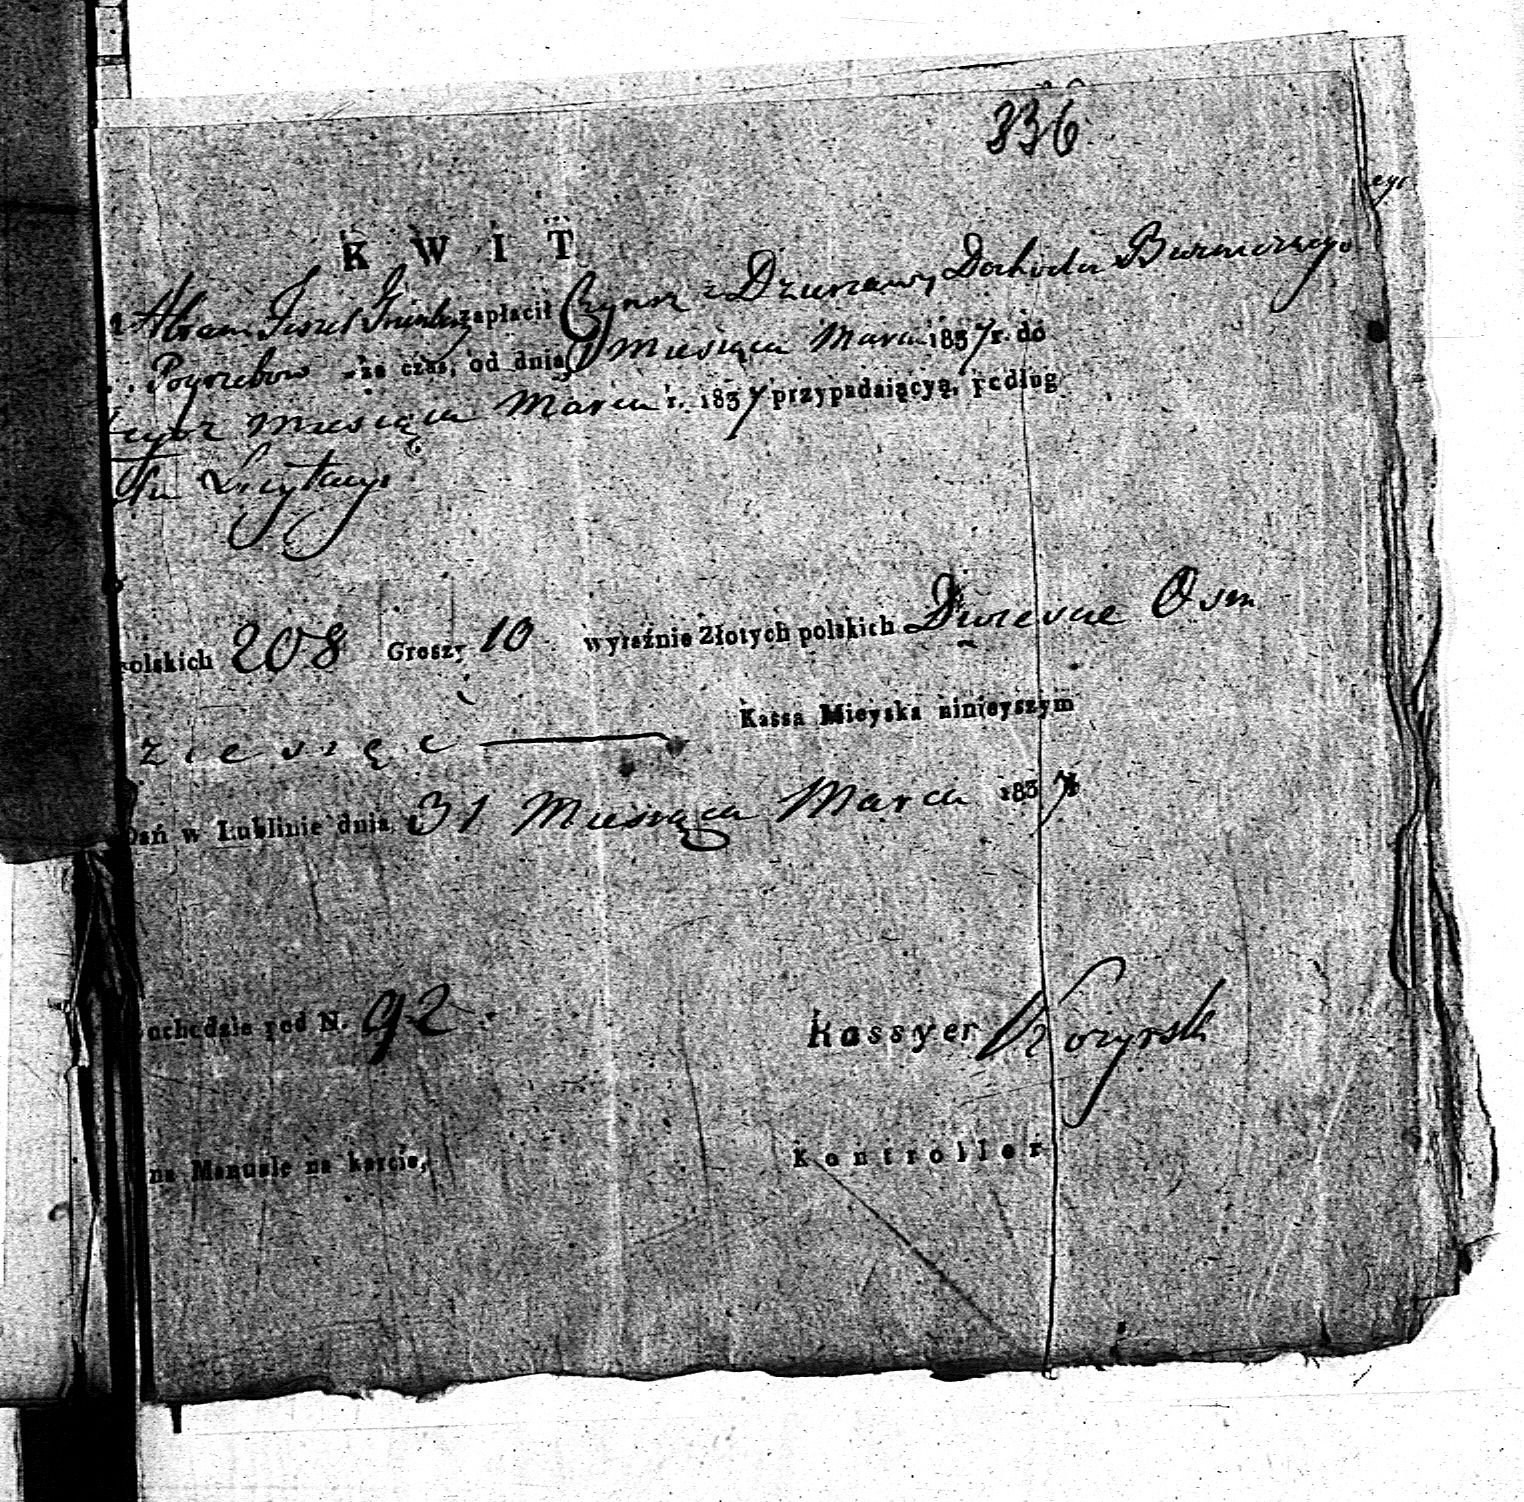 336
KWIT
Abram zapłacił Czynsz z Dzierzawy Dochodu
Pogrzebow za czas, od dnia 1 Miesiąca Marca 1837 r. do
Miesiąca Marca r. 1837 przypadaiącyą, podług
Licytacyi
olskich 208 Groszy 10 wyraźnie Złotych polskich Dwiescie Osm
ziesięc Kassa Mieyska ninieyszym
Dań w Lublinie dnia 31 Miesiąca Marca 1837
ochodzie pod N. 92 Kassyer
na Manuale na karcie, Kontroller